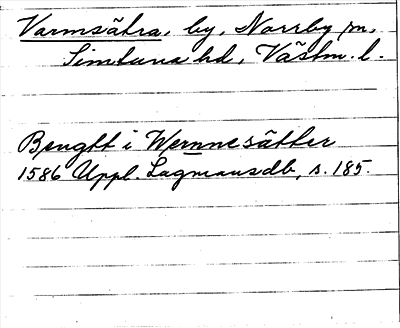 Varmsätra, by, Norrby sn,
Simtuna hd, Västm. l.
Bengtt i Wernnesätter
1586 Uppl. Lagmansdb, s. 185.